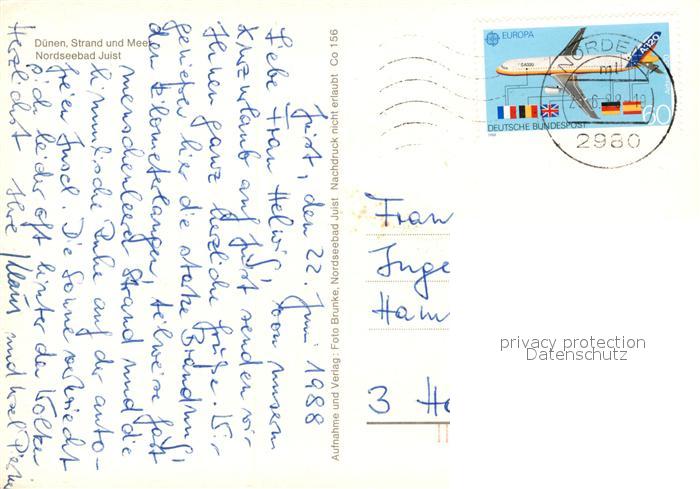 Dünen, Strand und Meer
Nordseebad Juist
Juist, den 22. Juni 1988
Liebe Frau Helwig, von unserm
Kurzurlaub auf Juist senden wir
Ihnen ganz herzliche Grüße. Wir
genießen hier die starke Brandung,
den kilometerlangen, teilweise fast
menschenleeren Strand und die
himmlische Ruhe auf der auto-
freien Insel. Die Sonne versteckt
sich leider oft hinter den Wolken
Herzlichst Ihre Klaus und
Aufnahme und Verlag: Foto Brunke, Nordseebad Juist Nachdruck nicht erlaubt Co 156
EUROPA
A320
DEUTSCHE BUNDESPOST
60
1988
NORDE
2980
Frau
Inge
Ham
3 Ha
privacy protection
Datenschutz